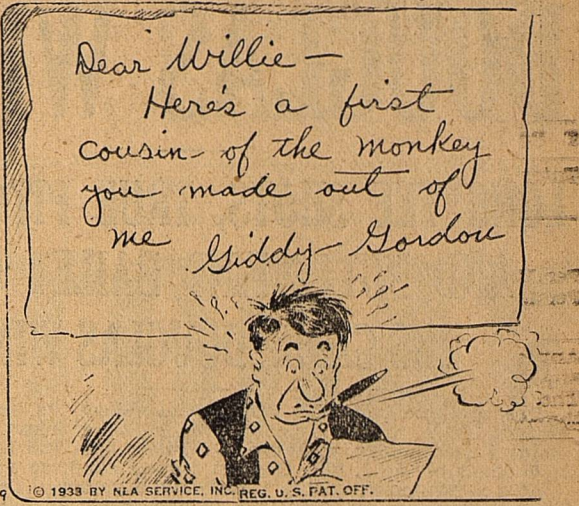 Dear Willie —
Here's a first
cousin of the monkey
you made out of
me Giddy Gordon
9 © 1933 BY NEA SERVICE, INC. REG. U. S. PAT. OFF.